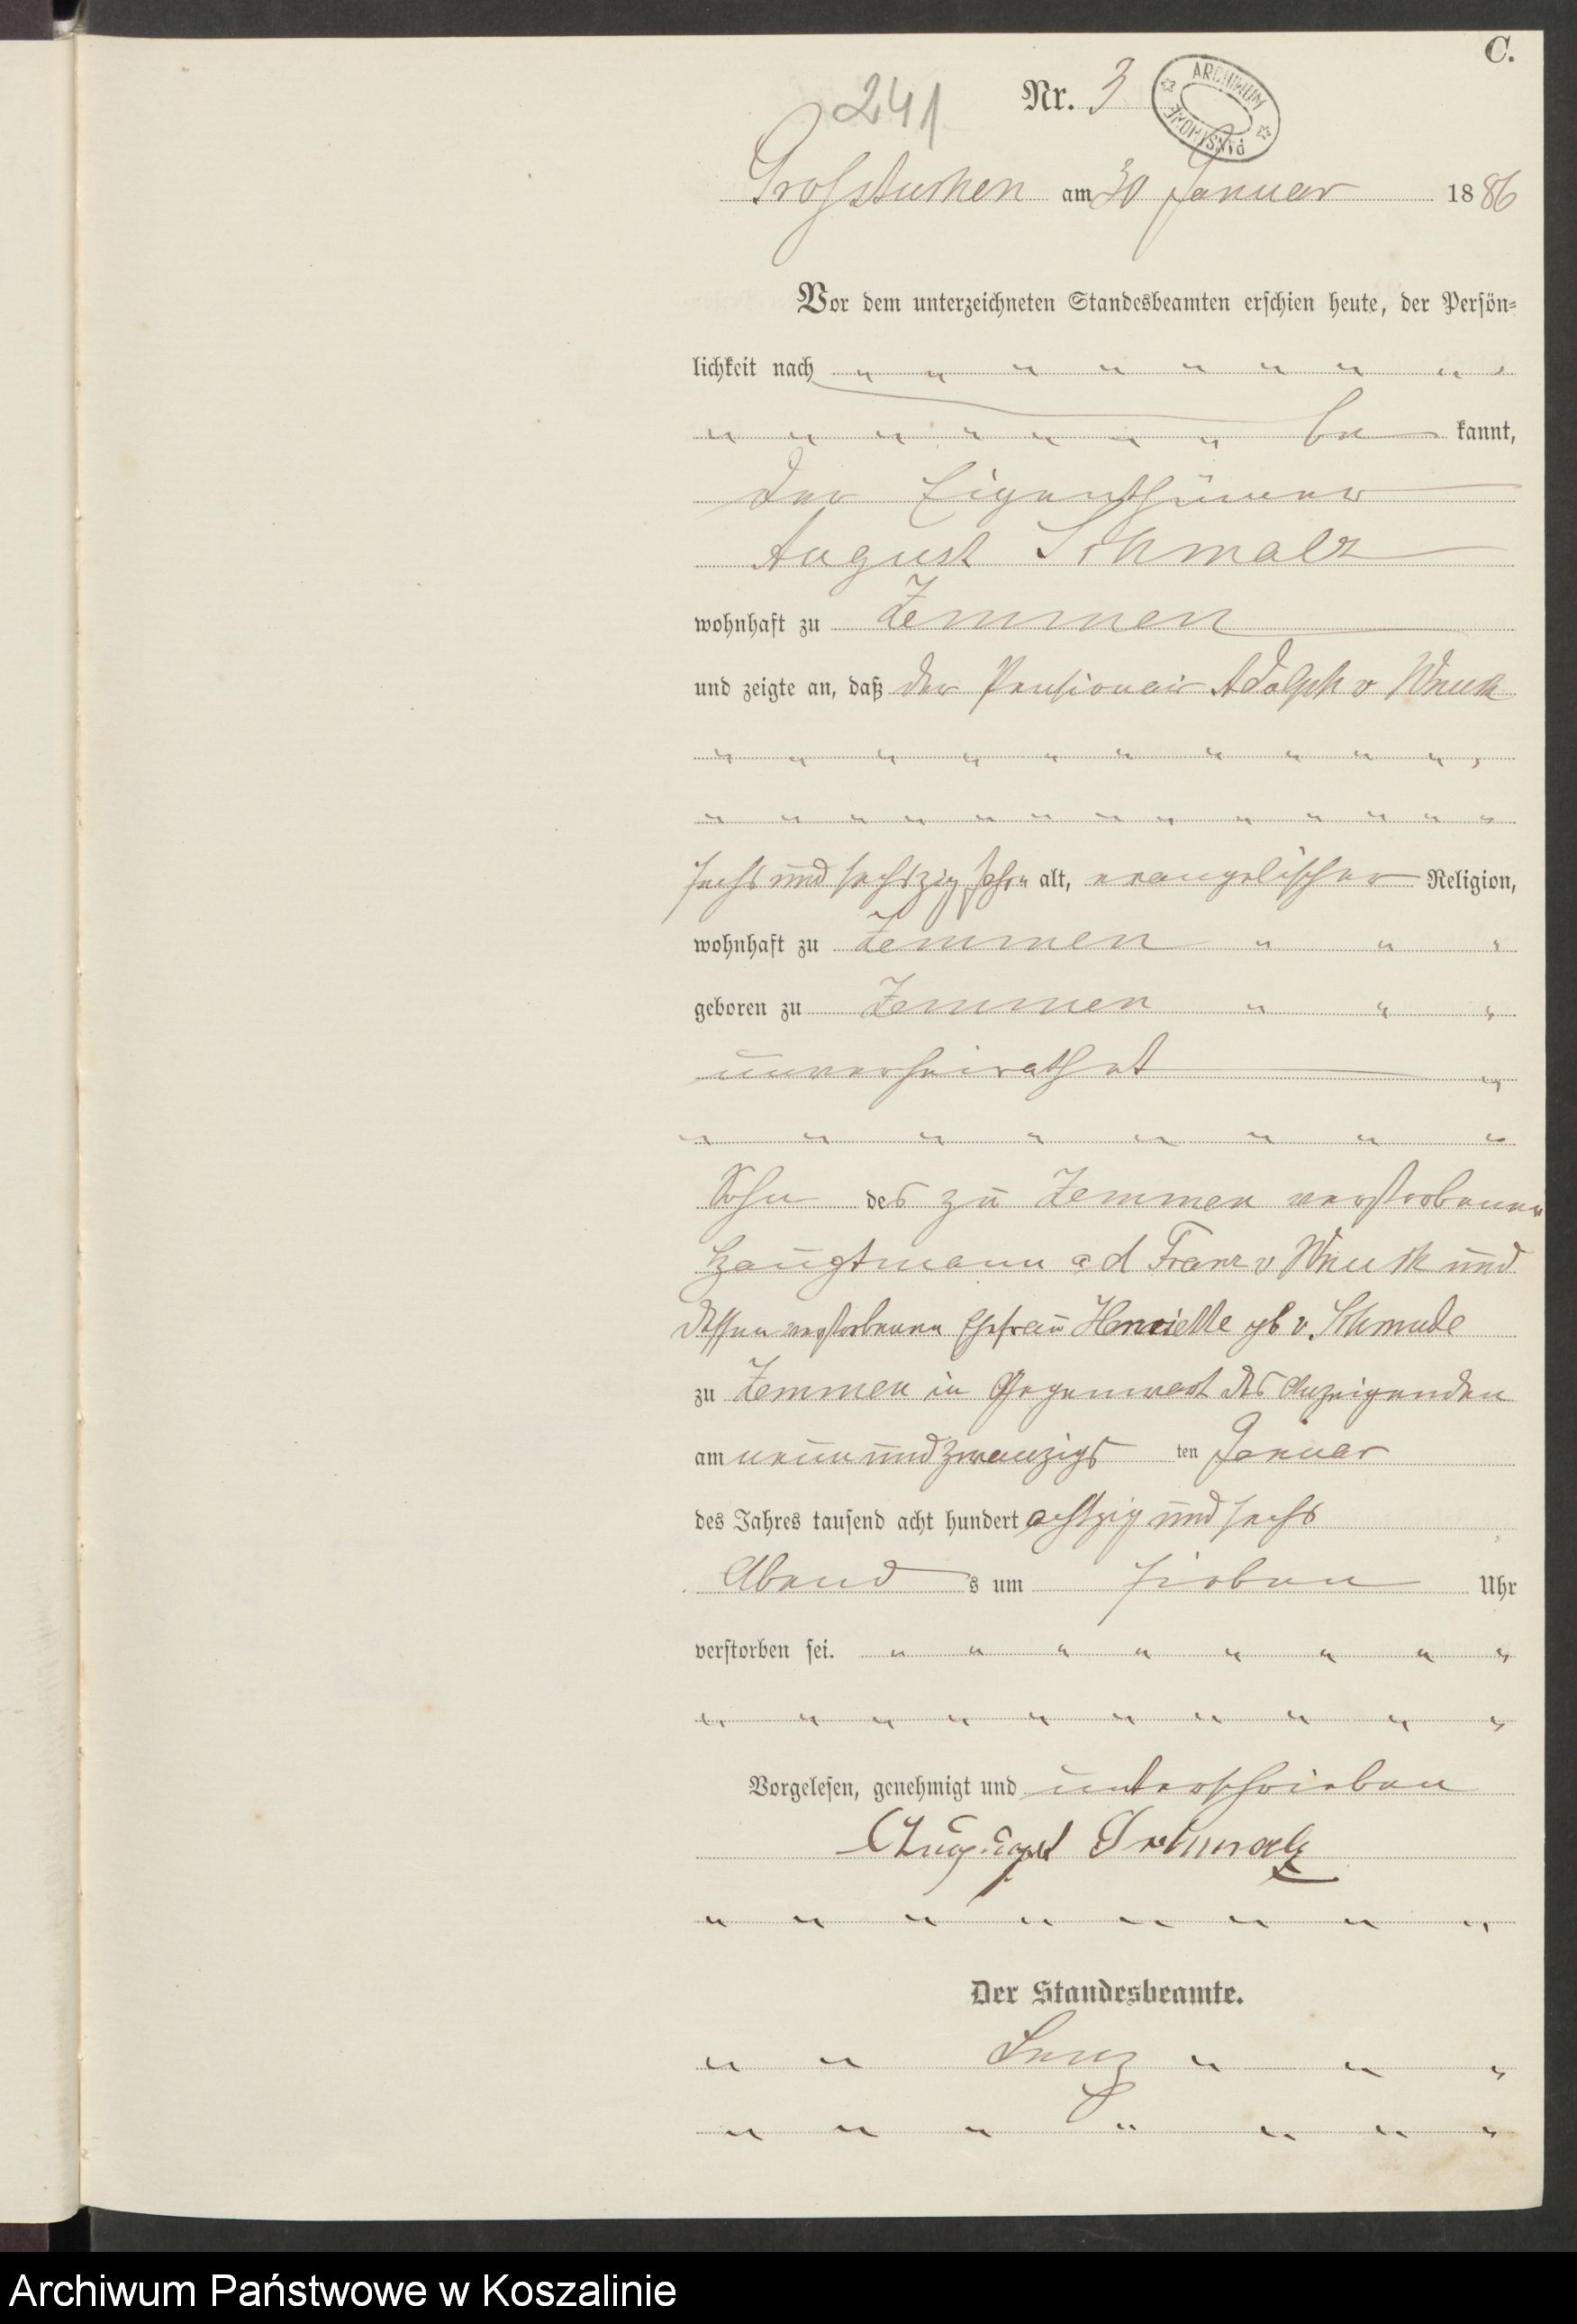 C.
241
Nr. 3
ARCHIWUM PAŃSTWOWE
Groß Tuchen am 30 Januar 1886
Vor dem unterzeichneten Standesbeamten erschien heute, der Persön-
lichkeit nach
be kannt,
der Eigenthümer
August Schmalz
wohnhaft zu Zemmen
und zeigte an, daß der Pensionair Adolph v Wnuk
sechs und sechszig Jahre alt, evangelischer Religion,
wohnhaft zu Zemmen
geboren zu Zemmen
unverheirathet
Sohn des zu Zemmen verstorbenen
Hauptmann a d Franz v Wnuk und
dessen verstorbenen Ehefrau Henriette gb v. Schmude
zu Zemmen in Gegenwart des Anzeigenden
am neunundzwanzigs ten Januar
des Jahres tausend acht hundert achtzig und sechs
Abend s um sieben Uhr
verstorben sei.
Vorgelesen, genehmigt und unterschrieben
August Schmalz
Der Standesbeamte.
Lenz
Archiwum Państwowe w Koszalinie